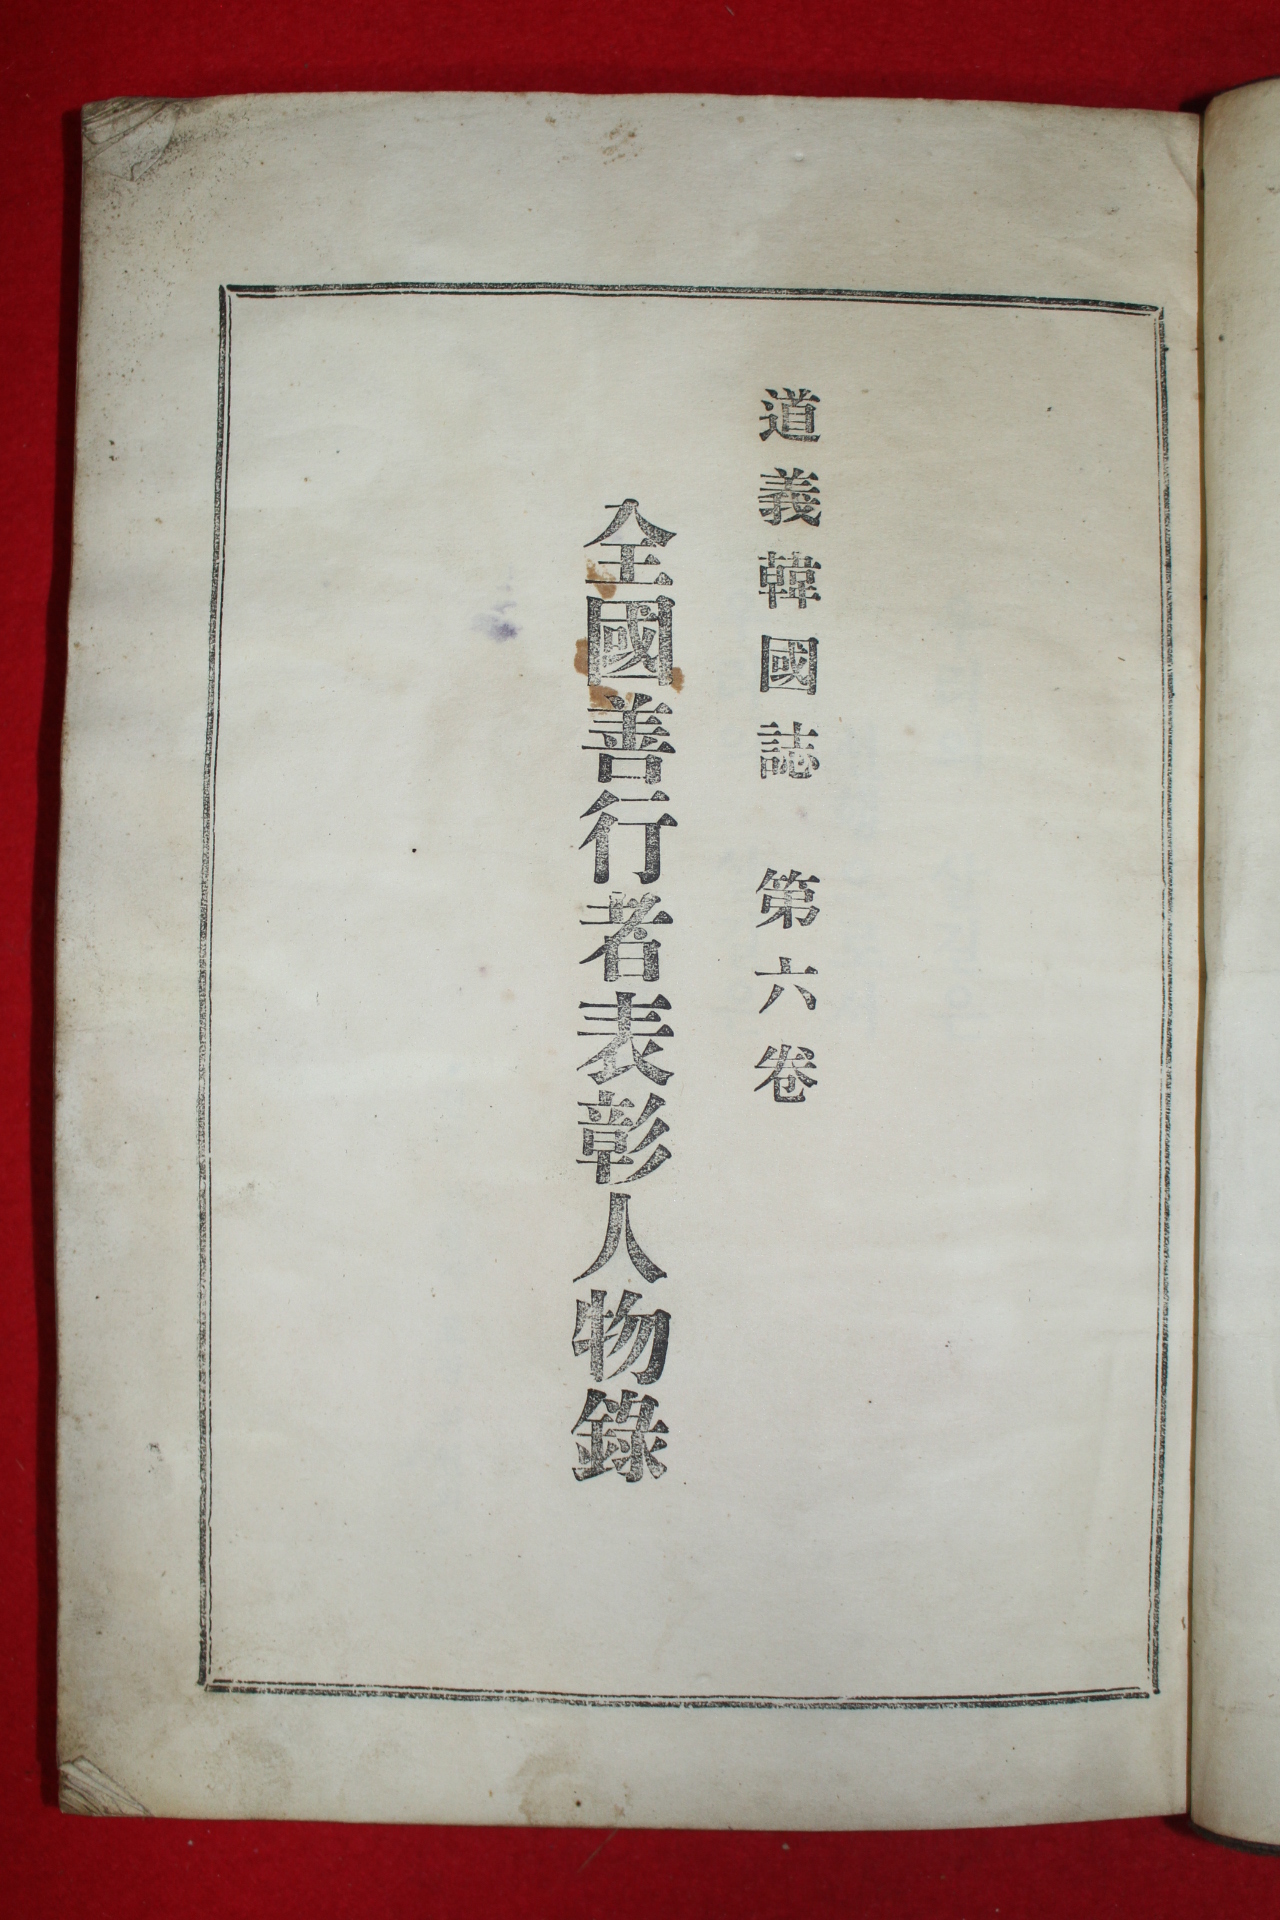 道義韓國誌 第六卷
全國善行者表彰人物錄